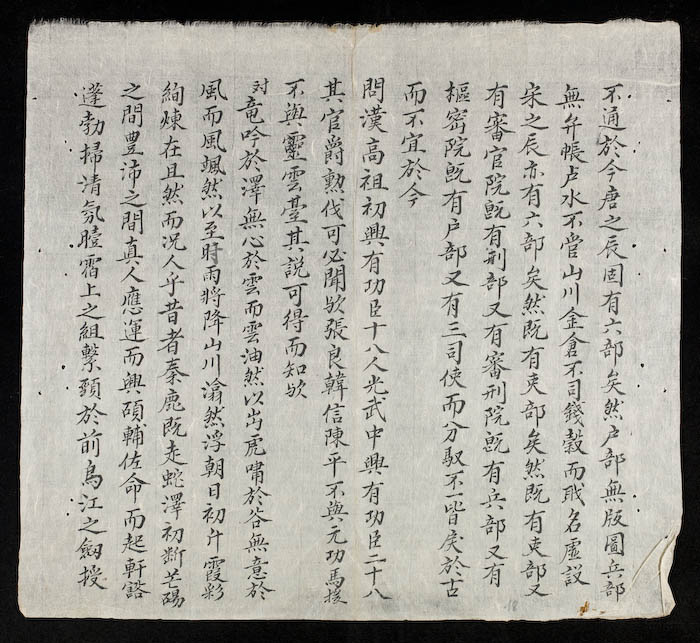 不通於今唐之辰固有六部矣然户部無版圖兵部
無弁帳卢水不管山川金倉不司錢穀而戝名虚設
宋之辰亦有六部矣然既有吏部矣然既有吏部又
有審官院既有刑部又有審刑院既有兵部又有
樞宻院既有户部又有三司使而分馭不一皆戾於古
而不宜於今
問漢高祖初興有功臣十八人光武中興有功臣二十八
其官爵勲伐可必聞欤張良韓信陳平不與元功馬援
不與靈雲臺其說可得而知欤
対竜吟於澤無心於雲而雲油然以出虎嘯於谷無意於
風而風颯然以至時雨将降山川滃然浮朝日初升霞彩
絢煉在且然而况人乎昔者秦鹿既走蛇澤初断芒碭
之間豊沛之間真人應運而興碩輔佐命而起軒豁
蓬勃掃清氛曀霤上之組繫頸於前烏江之劔授